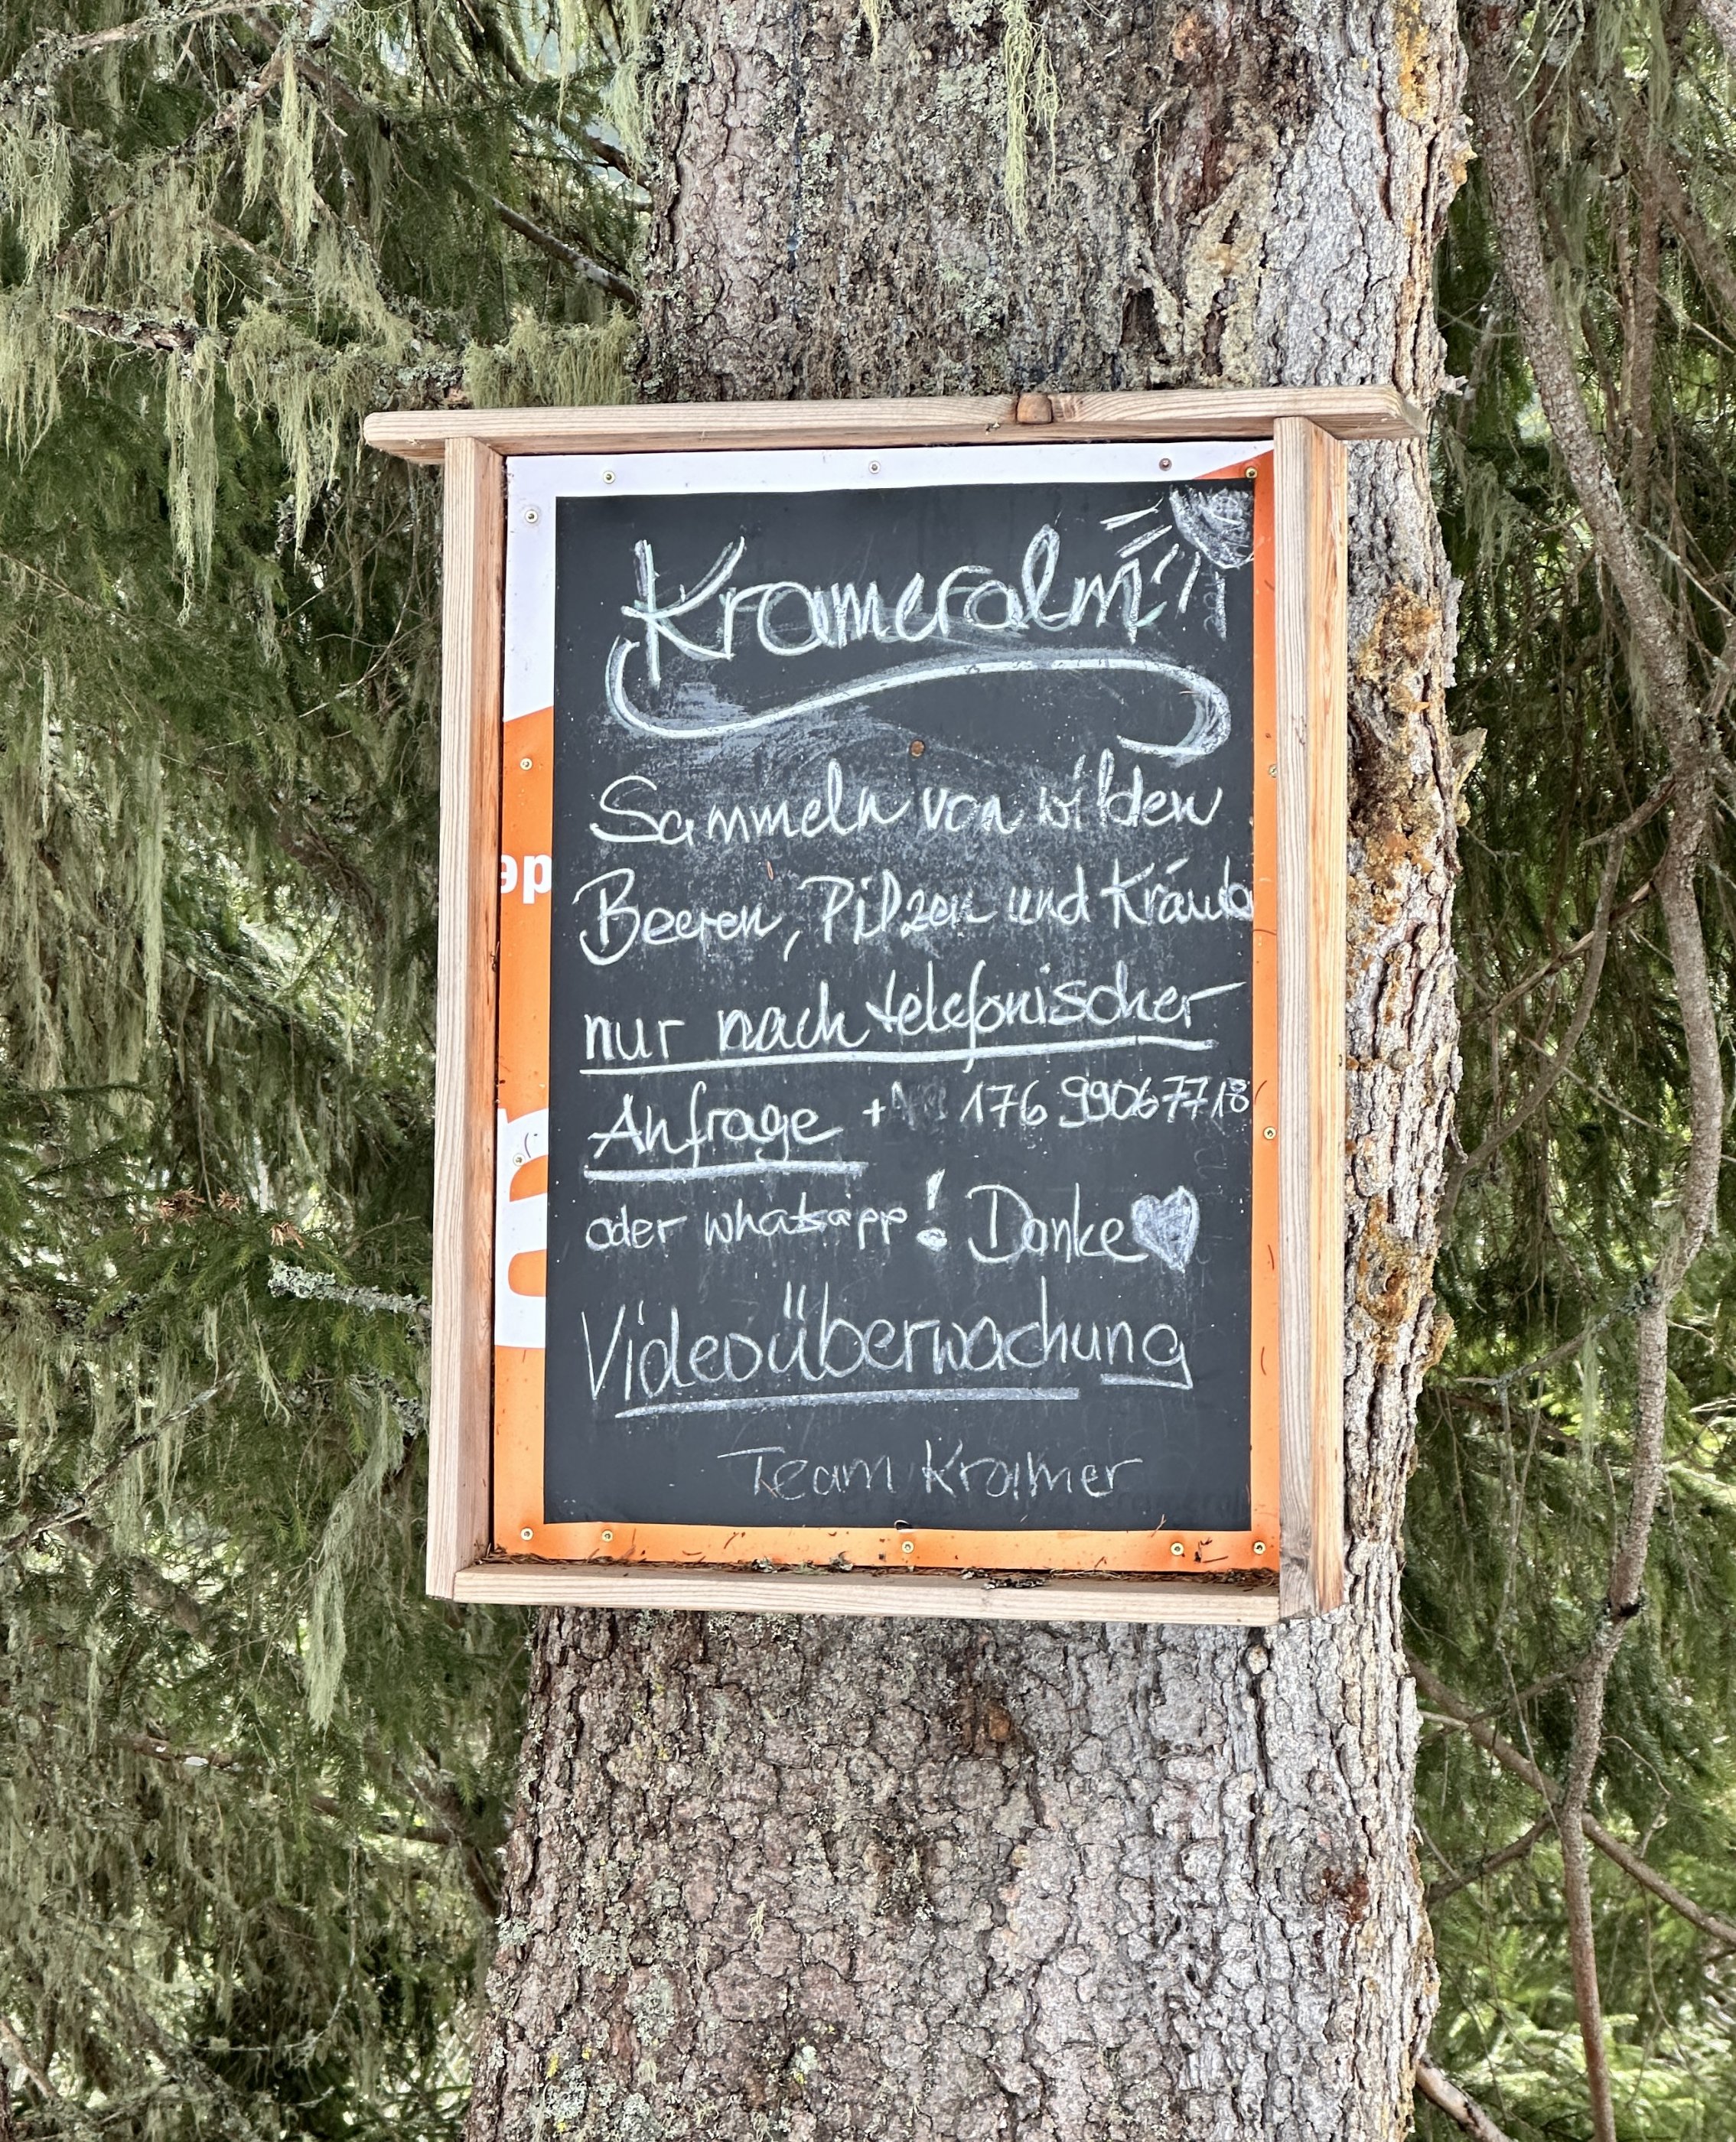 Krameralm
Sammeln von wilden
Beeren, Pilzen und Kräute
nur nach telefonischer
Anfrage + 176 99067718
oder whatsapp! Danke
Videoüberwachung
Team Kramer
ap